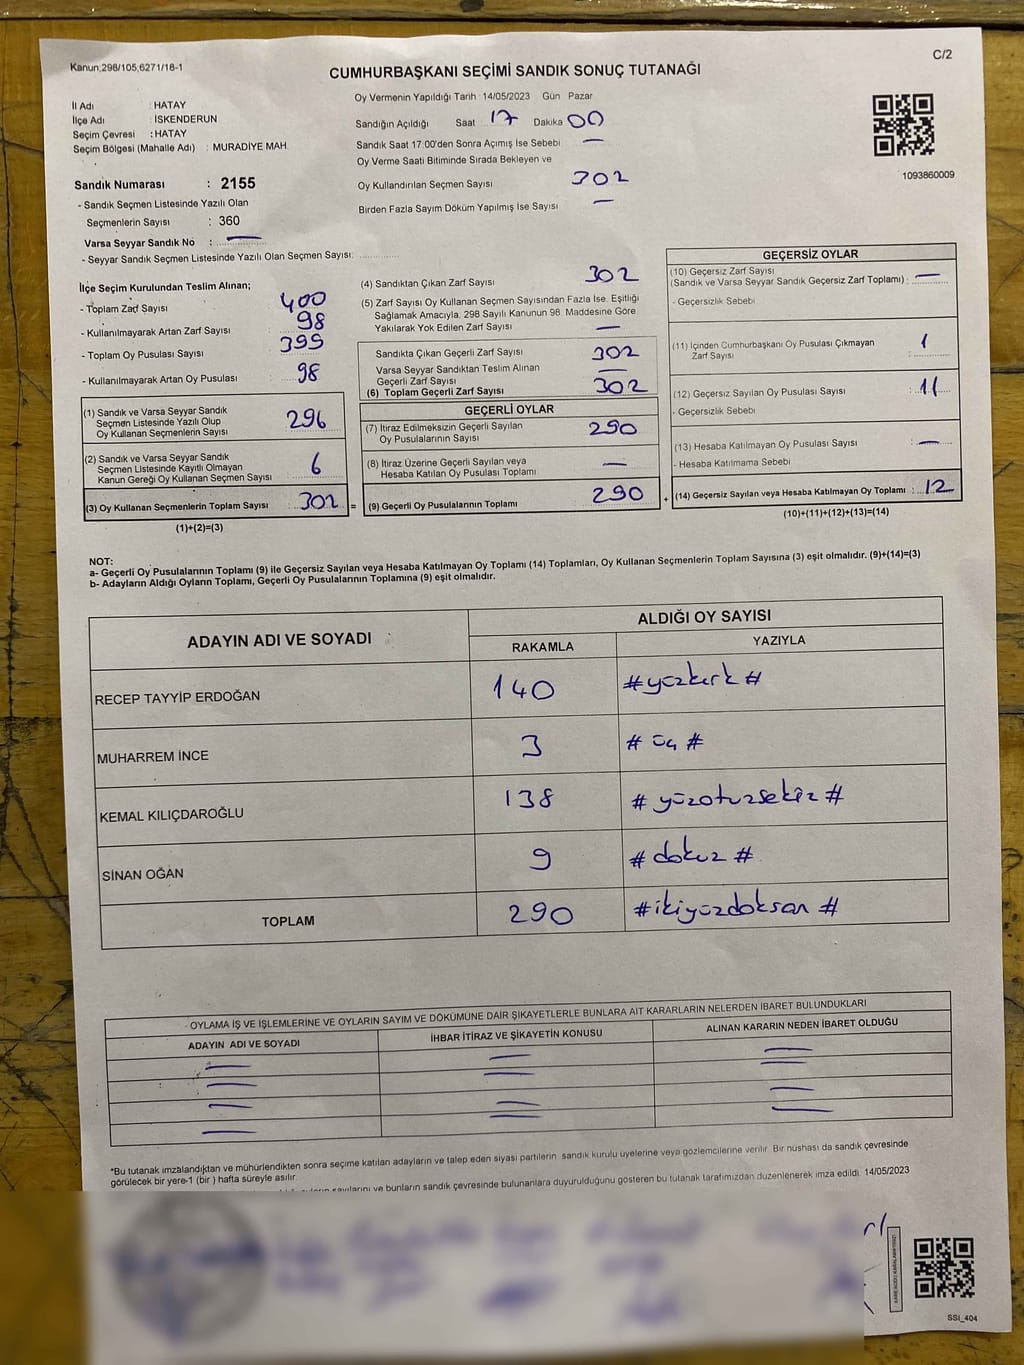 Kanun;298/105,6271/18-1
C/2
CUMHURBAŞKANI SEÇİMİ SANDIK SONUÇ TUTANAĞI
İl Adı : HATAY
İlçe Adı : İSKENDERUN
Seçim Çevresi : HATAY
Seçim Bölgesi (Mahalle Adı) : MURADİYE MAH.
Sandık Numarası : 2155
- Sandık Seçmen Listesinde Yazılı Olan
Seçmenlerin Sayısı : 360
Varsa Seyyar Sandık No : —
- Seyyar Sandık Seçmen Listesinde Yazılı Olan Seçmen Sayısı:
Oy Vermenin Yapıldığı Tarih 14/05/2023 Gün Pazar
Sandığın Açıldığı Saat 17 Dakika 00
Sandık Saat 17:00'den Sonra Açımış İse Sebebi —
Oy Verme Saati Bitiminde Sırada Bekleyen ve
Oy Kullandırılan Seçmen Sayısı 302
Birden Fazla Sayım Döküm Yapılmış İse Sayısı —
1093860009
İlçe Seçim Kurulundan Teslim Alınan;
- Toplam Zarf Sayısı 400
- Kullanılmayarak Artan Zarf Sayısı 98
- Toplam Oy Pusulası Sayısı 399
- Kullanılmayarak Artan Oy Pusulası 98
(1) Sandık ve Varsa Seyyar Sandık
Seçmen Listesinde Yazılı Olup
Oy Kullanan Seçmenlerin Sayısı 296
(2) Sandık ve Varsa Seyyar Sandık
Seçmen Listesinde Kayıtlı Olmayan
Kanun Gereği Oy Kullanan Seçmen Sayısı 6
(3) Oy Kullanan Seçmenlerin Toplam Sayısı 302 =
(1)+(2)=(3)
(4) Sandıktan Çıkan Zarf Sayısı 302
(5) Zarf Sayısı Oy Kullanan Seçmen Sayısından Fazla İse. Eşitliği
Sağlamak Amacıyla, 298 Sayılı Kanunun 98 Maddesine Göre
Yakılarak Yok Edilen Zarf Sayısı —
Sandıkta Çıkan Geçerli Zarf Sayısı 302
Varsa Seyyar Sandıktan Teslim Alınan
Geçerli Zarf Sayısı —
(6) Toplam Geçerli Zarf Sayısı 302
GEÇERLİ OYLAR
(7) İtiraz Edilmeksizin Geçerli Sayılan
Oy Pusulalarının Sayısı 290
(8) İtiraz Üzerine Geçerli Sayılan veya
Hesaba Katılan Oy Pusulası Toplamı —
(9) Geçerli Oy Pusulalarının Toplamı 290 +
GEÇERSİZ OYLAR
(10) Geçersiz Zarf Sayısı
(Sandık ve Varsa Seyyar Sandık Geçersiz Zarf Toplamı) : —
- Geçersizlik Sebebi
(11) İçinden Cumhurbaşkanı Oy Pusulası Çıkmayan
Zarf Sayısı : 1
(12) Geçersiz Sayılan Oy Pusulası Sayısı : 11
- Geçersizlik Sebebi
(13) Hesaba Katılmayan Oy Pusulası Sayısı : —
- Hesaba Katılmama Sebebi
(14) Geçersiz Sayılan veya Hesaba Katılmayan Oy Toplamı : 12
(10)+(11)+(12)+(13)=(14)
NOT:
a- Geçerli Oy Pusulalarının Toplamı (9) ile Geçersiz Sayılan veya Hesaba Katılmayan Oy Toplamı (14) Toplamları, Oy Kullanan Seçmenlerin Toplam Sayısına (3) eşit olmalıdır. (9)+(14)=(3)
b- Adayların Aldığı Oyların Toplamı, Geçerli Oy Pusulalarının Toplamına (9) eşit olmalıdır.
ADAYIN ADI VE SOYADI
ALDIĞI OY SAYISI
RAKAMLA YAZIYLA
RECEP TAYYİP ERDOĞAN 140 #yüzkırk#
MUHARREM İNCE 3 # üç #
KEMAL KILIÇDAROĞLU 138 # yüzotuzsekiz #
SİNAN OĞAN 9 # dokuz #
TOPLAM 290 #ikiyüzdoksan #
OYLAMA İŞ VE İŞLEMLERİNE VE OYLARIN SAYIM VE DÖKÜMÜNE DAİR ŞİKAYETLERLE BUNLARA AİT KARARLARIN NELERDEN İBARET BULUNDUKLARI
ADAYIN ADI VE SOYADI İHBAR İTİRAZ VE ŞİKAYETİN KONUSU ALINAN KARARIN NEDEN İBARET OLDUĞU
*Bu tutanak imzalandıktan ve mühürlendikten sonra seçime katılan adayların ve talep eden siyasi partilerin sandık kurulu üyelerine veya gözlemcilerine verilir. Bir nüshası da sandık çevresinde
görülecek bir yere-1 (bir ) hafta süreyle asılır
sayılarını ve bunların sandık çevresinde bulunanlara duyurulduğunu gösteren bu tutanak tarafımızdan düzenlenerek imza edildi. 14/05/2023
SSI_404